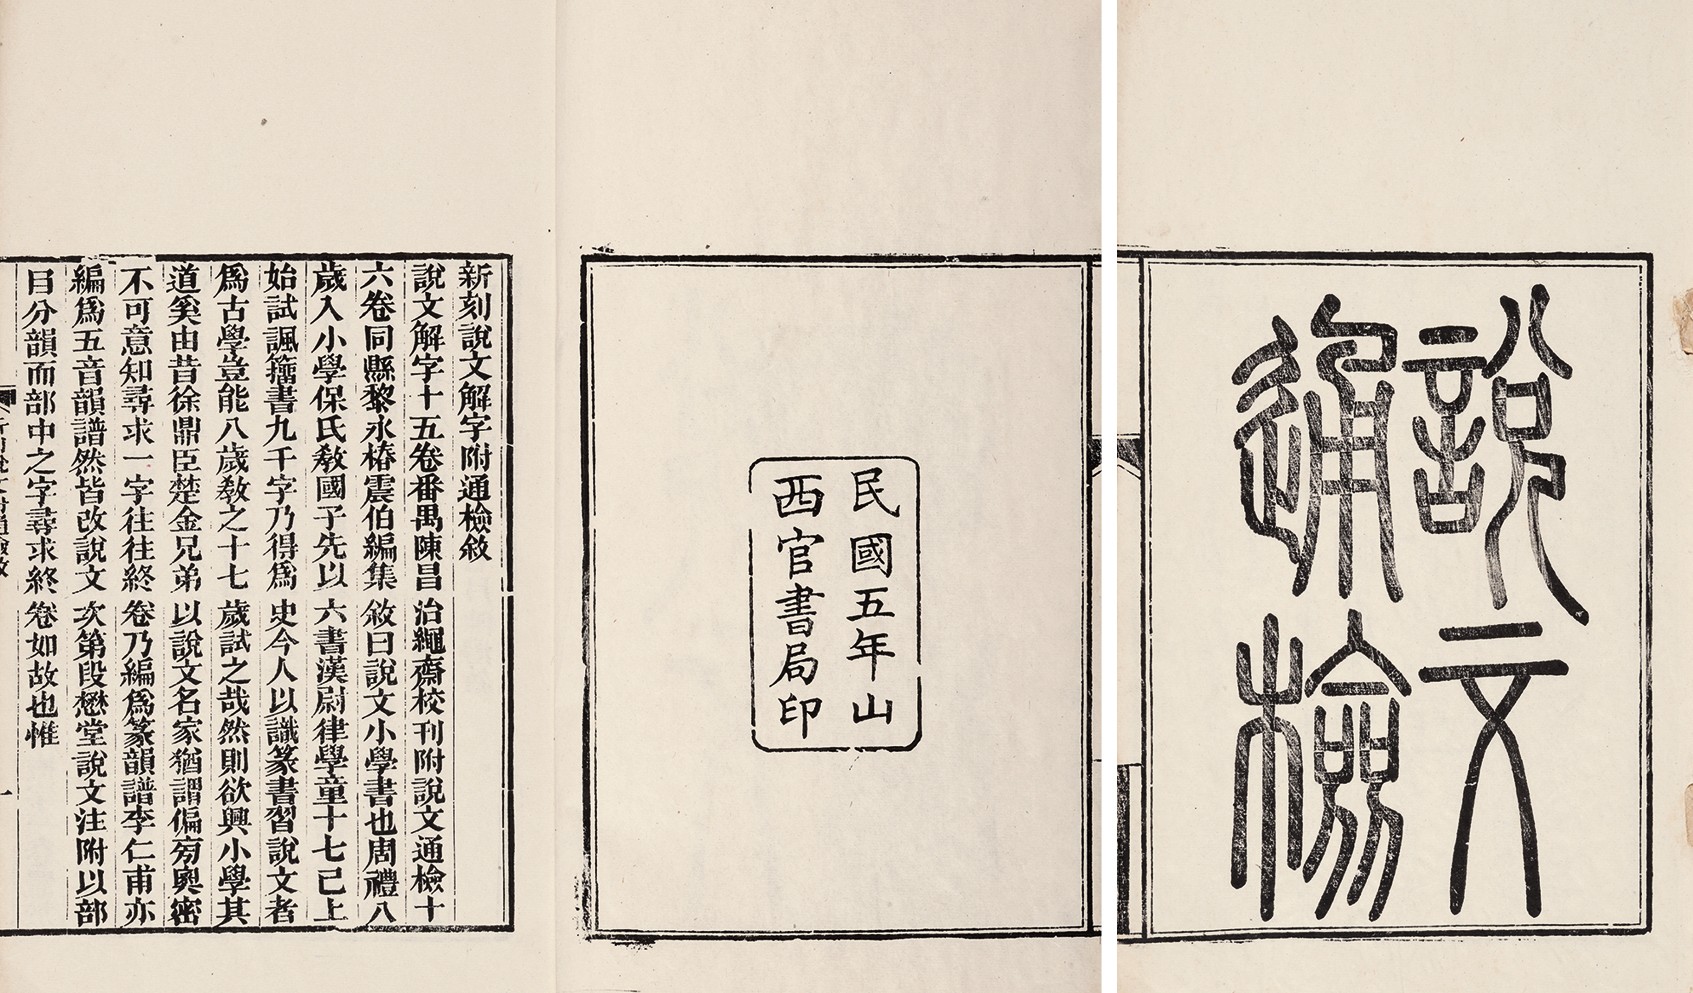 說文
通檢
民國五年山
西官書局印
新刻說文解字附通檢敘
說文解字十五卷番禺陳昌治繩齋校刊附說文通檢十
六卷同縣黎永椿震伯編集敘曰說文小學書也周禮八
歲入小學保氏敎國子先以六書漢尉律學童十七已上
始試諷籒書九千字乃得爲史今人以識篆書習說文者
爲古學豈能八歲敎之十七歲試之哉然則欲興小學其
道奚由昔徐鼎臣楚金兄弟以說文名家猶謂偏旁奧密
不可意知尋求一字往往終卷乃編爲篆韻譜李仁甫亦
編爲五音韻譜然皆改說文次第段懋堂說文注附以部
目分韻而部中之字尋求終卷如故也惟
一